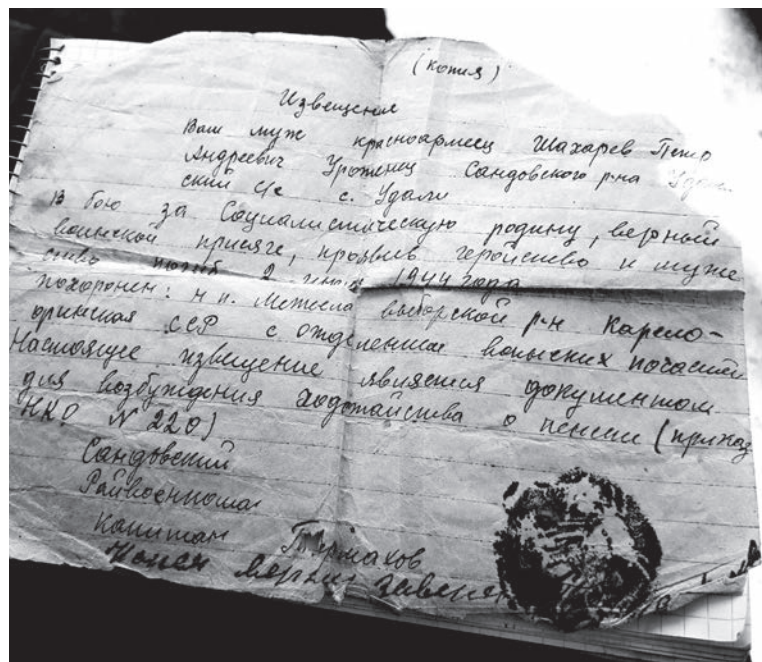 (копия)
Извещение
Ваш муж красноармеец Шахарев Петр
Андреевич Уроженец Сандовского р-на
ский с/с с. Удали
В бою за Социалистическую родину, верный
воинской присяге, проявив геройство и муже
ство погиб 2 1944 года
похоронен: н.п. выборской р-н Карело-
финская ССР с отделением воинских почастей
Настоящее извещение является документом
для возбуждения ходотайства о пенсии (приказ
НКО N 220)
Сандовский
Райвоенкомат
Капитан
Копия верна